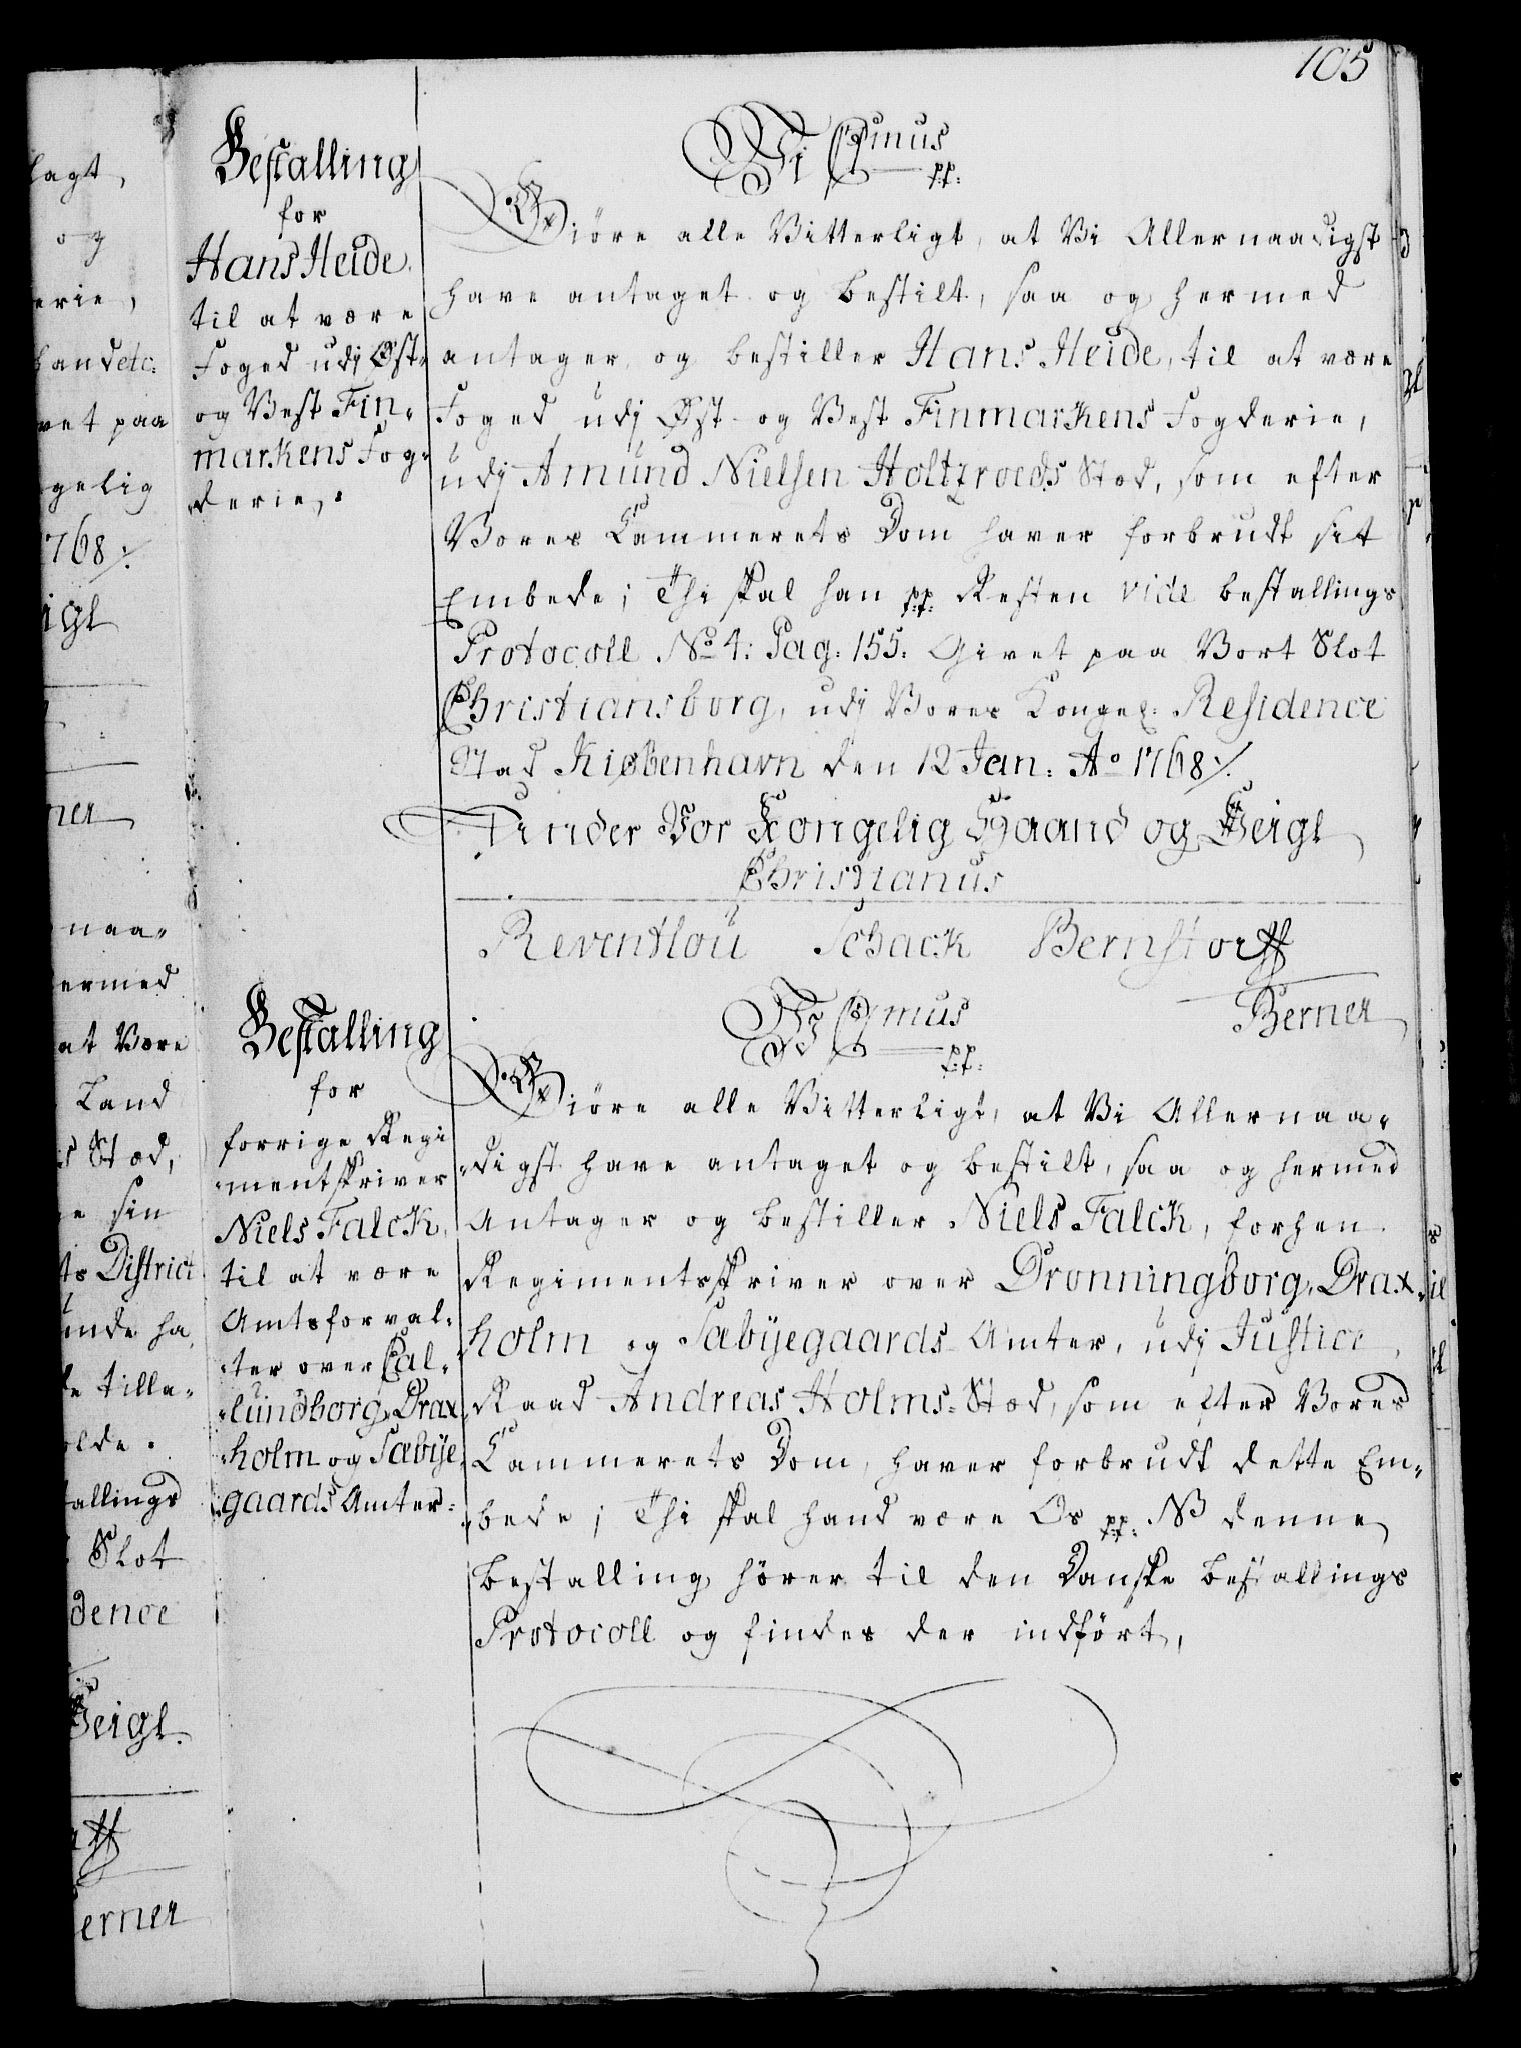 105
Bestalling
for
Hans Heide
til at være
Foged udj Øst-
og Vest Fin-
markens Fog-
derie,
Vi Cþmus
pp:
Giöre alle Vitterligt, at Vi Allernaadigst
have antaget og bestilt, saa og hermed
antager og bestiller Hans Heide, til at være
Foged udj Øst- og Vest Finmarkens Fogderie,
udj Amund Nielsen Holtzroeds Stæd, som efter
Vores Cammerets Dom haver forbrudt sit
Embede; Thi skal han pp: Resten vide bestallings
Protocoll No 4: Pag: 155: Givet paa Vort Slot
Christiansborg, udj Vores Kongel: Residence
Stad Kiøbenhavn den 12 Jan: Ao 1768 ⁒
Under Vor Kongelig Haand og Seigl
Christianus
Reventlou Schack Bernstorff
Berner
Bestalling
for
forrige Regi
mentskriver
Niels Falck,
til at være
Amtsforval-
ter over Cal-
lundborg, Drax
holm og Sæbye
gaards Amter:
Vi Cþmus
pp:
Giöre alle Vitterligt, at Vi Allernaa-
digst have antaget og bestilt, saa og hermed
Antager og bestiller Niels Falck, forhen
Regimentsskriver over Dronningborg, Drax-
holm og Sæbyegaards Amter, udj Justice
Raad Andreas Holms Stæd, som efter Vores
Cammerets Dom, haver forbrudt dette Em-
bede; Thi skal hand være Os pp: NB denne
bestalling hører til den Danske bestallings
Protocoll og findes der indfört,